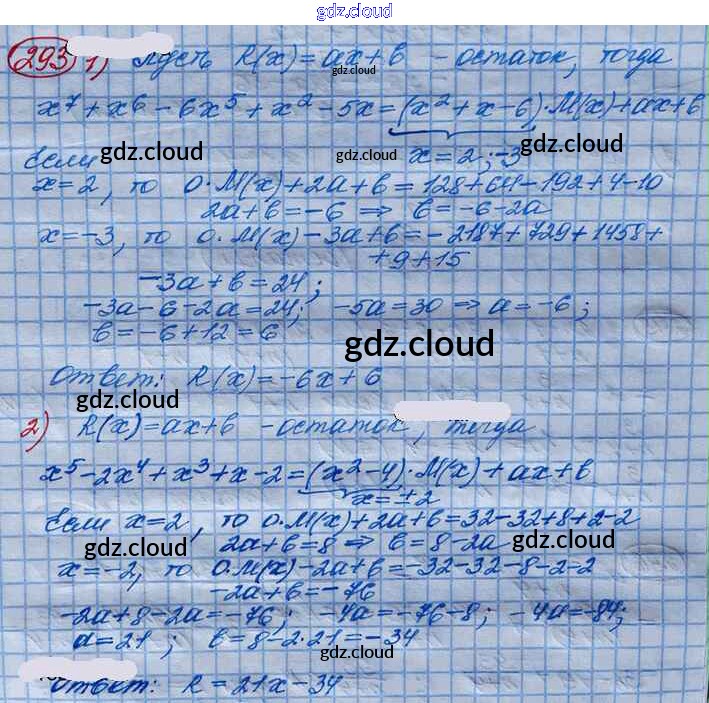 gdz.cloud
293 1) Пусть R(x) = ax + b - остаток, тогда
gdz.cloud
x⁷ + x⁶ - 6x⁵ + x² - 5x = (x² + x - 6)·M(x) + ax + b
Если gdz.cloud gdz.cloud x = 2; -3 gdz.cloud
x = 2, то 0·M(x) + 2a + b = 128 + 64 - 192 + 4 - 10
2a + b = -6 ⇒ b = -6 - 2a
x = -3, то 0·M(x) - 3a + b = -2187 + 729 + 1458 +
+ 9 + 15
-3a + b = 24;
-3a - 6 - 2a = 24; -5a = 30 ⇒ a = -6;
b = -6 + 12 = 6
gdz.cloud
Ответ: R(x) = -6x + 6
gdz.cloud
2) R(x) = ax + b - остаток, тогда
x⁵ - 2x⁴ + x³ + x - 2 = (x² - 4)·M(x) + ax + b
x = ±2
Если x = 2, то 0·M(x) + 2a + b = 32 - 32 + 8 + 2 - 2
gdz.cloud 2a + b = 8 ⇒ b = 8 - 2a gdz.cloud
x = -2, то 0·M(x) - 2a + b = -32 - 32 - 8 - 2 - 2
-2a + b = -76
-2a + 8 - 2a = -76; -4a = -76 - 8; -4a = -84;
a = 21; b = 8 - 2·21 = -34
gdz.cloud
Ответ: R = 21x - 34